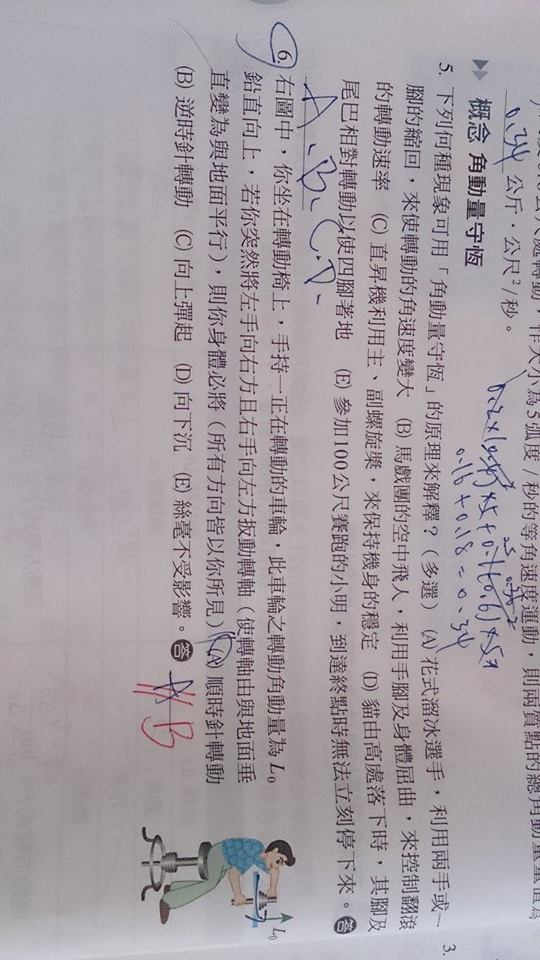 尺處轉動,作大小為5弧度/秒的等角速度運動,則兩質點的總角動量量值為
0.34 公斤.公尺²/秒。
0.16 + 0.18 = 0.34
▶▶ 概念 角動量守恆
5. 下列何種現象可用「角動量守恆」的原理來解釋?(多選) (A) 花式溜冰選手,利用兩手或一
腳的縮回,來使轉動的角速度變大 (B) 馬戲團的空中飛人,利用手腳及身體屈曲,來控制翻滾
的轉動速率 (C) 直昇機利用主、副螺旋槳,來保持機身的穩定 (D) 貓由高處落下時,其腳及
尾巴相對轉動以使四腳著地 (E) 參加100公尺賽跑的小明,到達終點時無法立刻停下來。答
A、B、C、D、
6. 右圖中,你坐在轉動椅上,手持一正在轉動的車輪,此車輪之轉動角動量為 L₀
鉛直向上,若你突然將左手向右方且右手向左方扳動轉軸(使轉軸由與地面垂
直變為與地面平行),則你身體必將(所有方向皆以你所見) (A) 順時針轉動
(B) 逆時針轉動 (C) 向上彈起 (D) 向下沉 (E) 絲毫不受影響。答 A B
L₀
3.